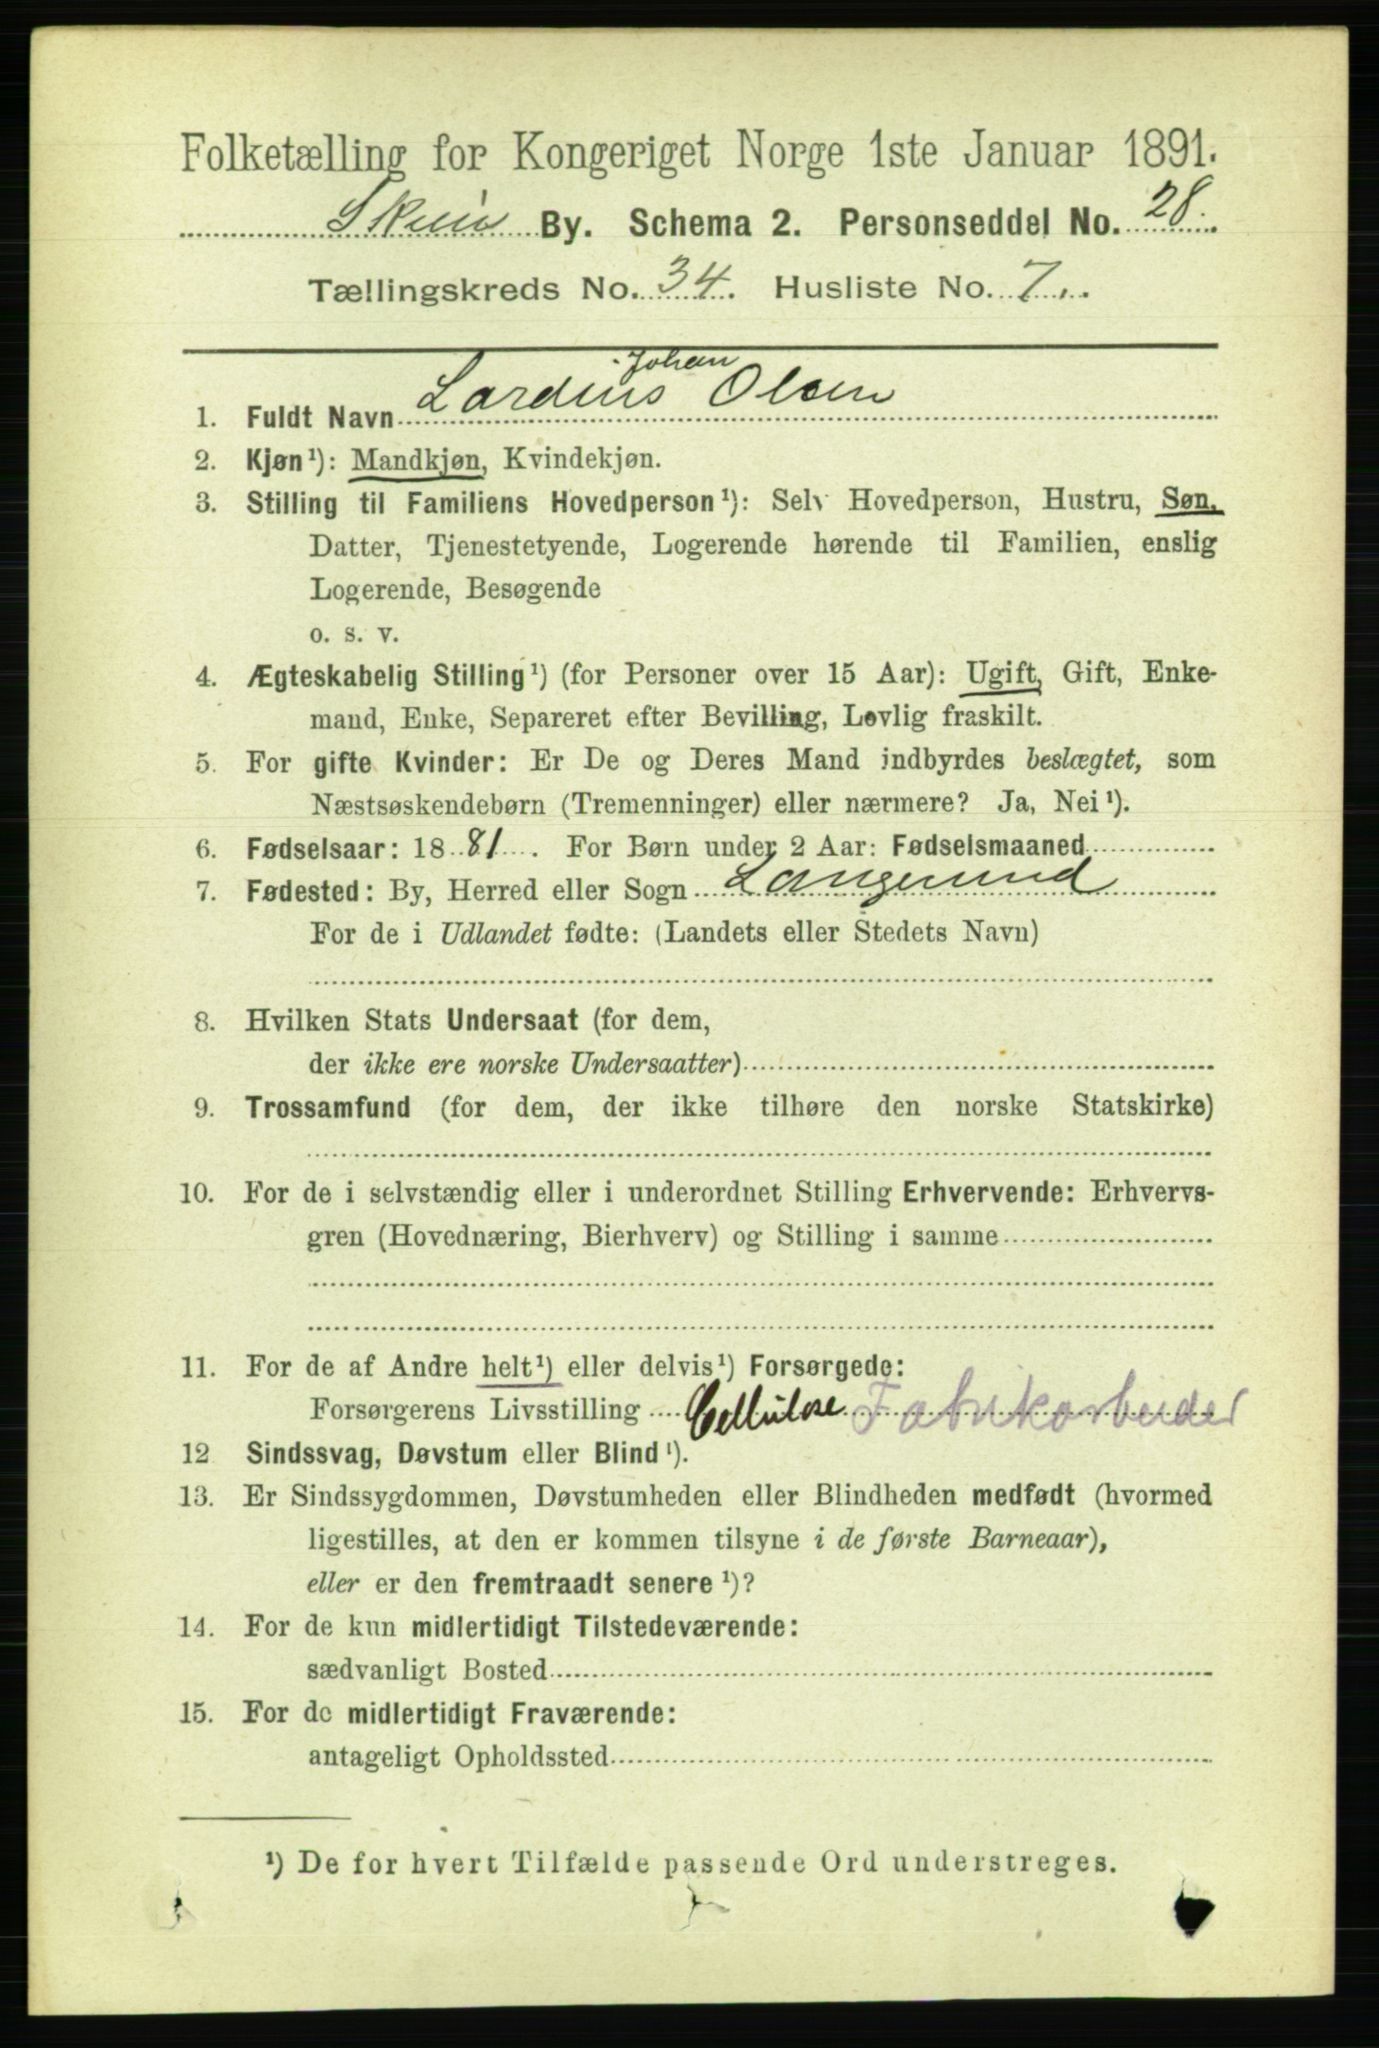 Folketælling for Kongeriget Norge 1ste Januar 1891.
Skien By. Schema 2. Personseddel No. 28.
Tællingskreds No. 34. Husliste No. 7.
Johan
1. Fuldt Navn Lardius Olsen
2. Kjøn¹): Mandkjøn, Kvindekjøn.
3. Stilling til Familiens Hovedperson¹): Selv Hovedperson, Hustru, Søn,
Datter, Tjenestetyende, Logerende hørende til Familien, enslig
Logerende, Besøgende
o. s. v.
4. Ægteskabelig Stilling¹) (for Personer over 15 Aar): Ugift, Gift, Enke-
mand, Enke, Separeret efter Bevilling, Lovlig fraskilt.
5. For gifte Kvinder: Er De og Deres Mand indbyrdes beslægtet, som
Næstsøskendebørn (Tremenninger) eller nærmere? Ja, Nei¹).
6. Fødselsaar: 1881. For Børn under 2 Aar: Fødselsmaaned
7. Fødested: By, Herred eller Sogn Langesund
For de i Udlandet fødte: (Landets eller Stedets Navn)
8. Hvilken Stats Undersaat (for dem,
der ikke ere norske Undersaatter)
9. Trossamfund (for dem, der ikke tilhøre den norske Statskirke)
10. For de i selvstændig eller i underordnet Stilling Erhvervende: Erhvervs-
gren (Hovednæring, Bierhverv) og Stilling i samme
11. For de af Andre helt¹) eller delvis¹) Forsørgede:
Forsørgerens Livsstilling Cellulose Fabrikarbeider
12 Sindssvag, Døvstum eller Blind¹).
13. Er Sindssygdommen, Døvstumheden eller Blindheden medfødt (hvormed
ligestilles, at den er kommen tilsyne i de første Barneaar),
eller er den fremtraadt senere¹)?
14. For de kun midlertidigt Tilstedeværende:
sædvanligt Bosted
15. For de midlertidigt Fraværende:
antageligt Opholdssted
¹) De for hvert Tilfælde passende Ord understreges.